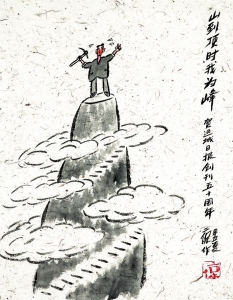 山到顶时我为峰
贺运城日报创刊五十周年